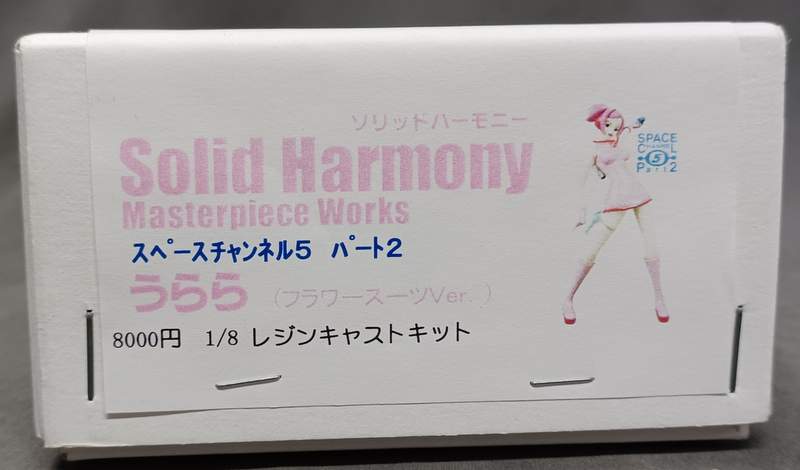 ソリッドハーモニー
Solid Harmony
Masterpiece Works
スペースチャンネル5 パート2
うらら (フラワースーツVer.)
8000円 1/8 レジンキャストキット
SPACE
CHANNEL
5
Part2